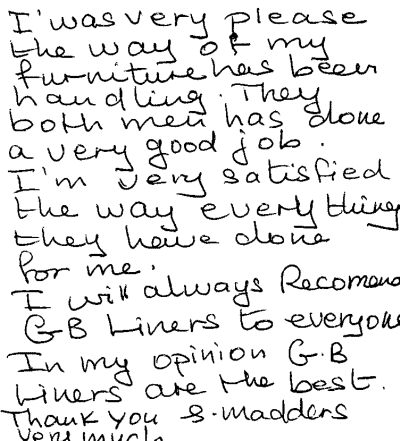 I'was very please
the way of my
furniture has been
handling. They
both men has done
a very good job.
I'm very satisfied
the way everything
they have done
for me.
I will always Recomend
G-B Liners to everyone
In my opinion G.B
Liners are the best.
Thank you S. madders
very much